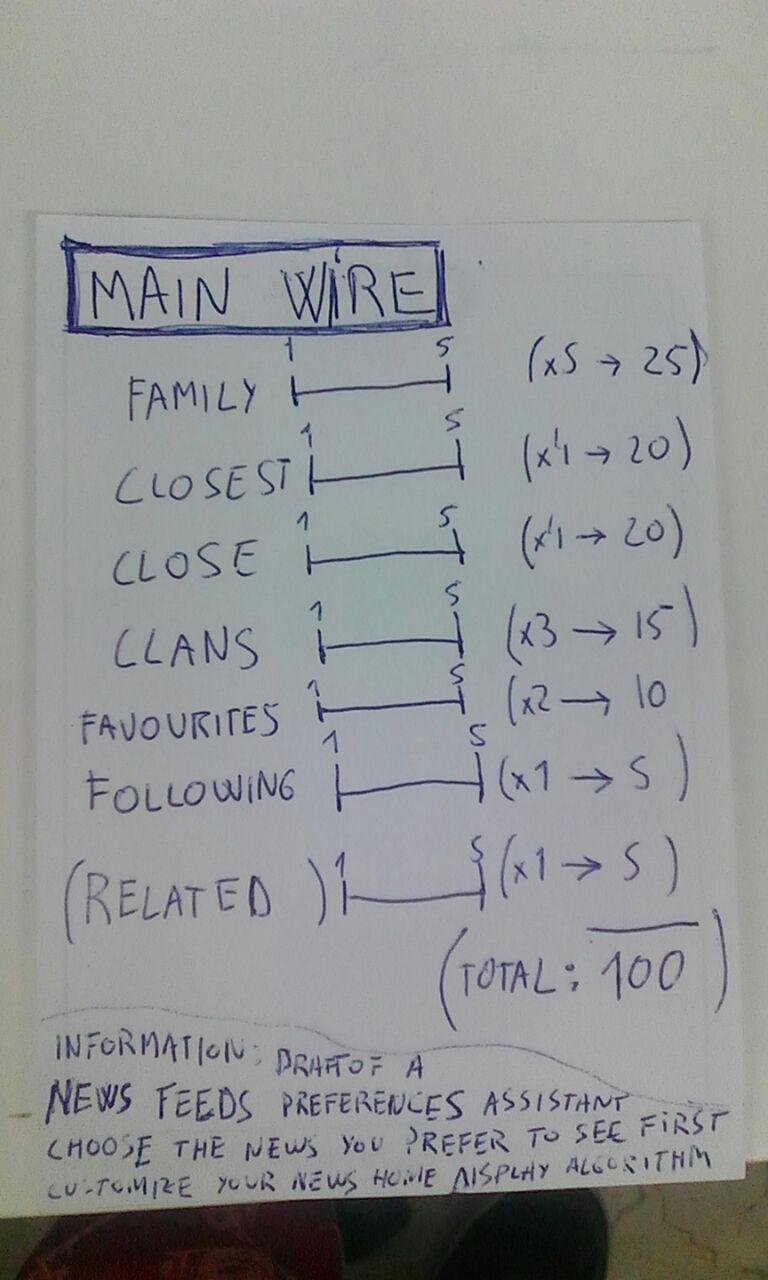 MAIN WIRE
FAMILY 1 5 (x5 → 25)
CLOSEST 1 5 (x4 → 20)
CLOSE 1 5 (x4 → 20)
CLANS 1 5 (x3 → 15)
FAVOURITES 1 5 (x2 → 10
FOLLOWING 1 5 (x1 → 5)
(RELATED) 1 5 (x1 → 5)
(TOTAL: 100)
INFORMATION: DRAFT OF A
NEWS FEEDS PREFERENCES ASSISTANT
CHOOSE THE NEWS YOU PREFER TO SEE FIRST
CUSTOMIZE YOUR NEWS HOME DISPLAY ALGORITHM